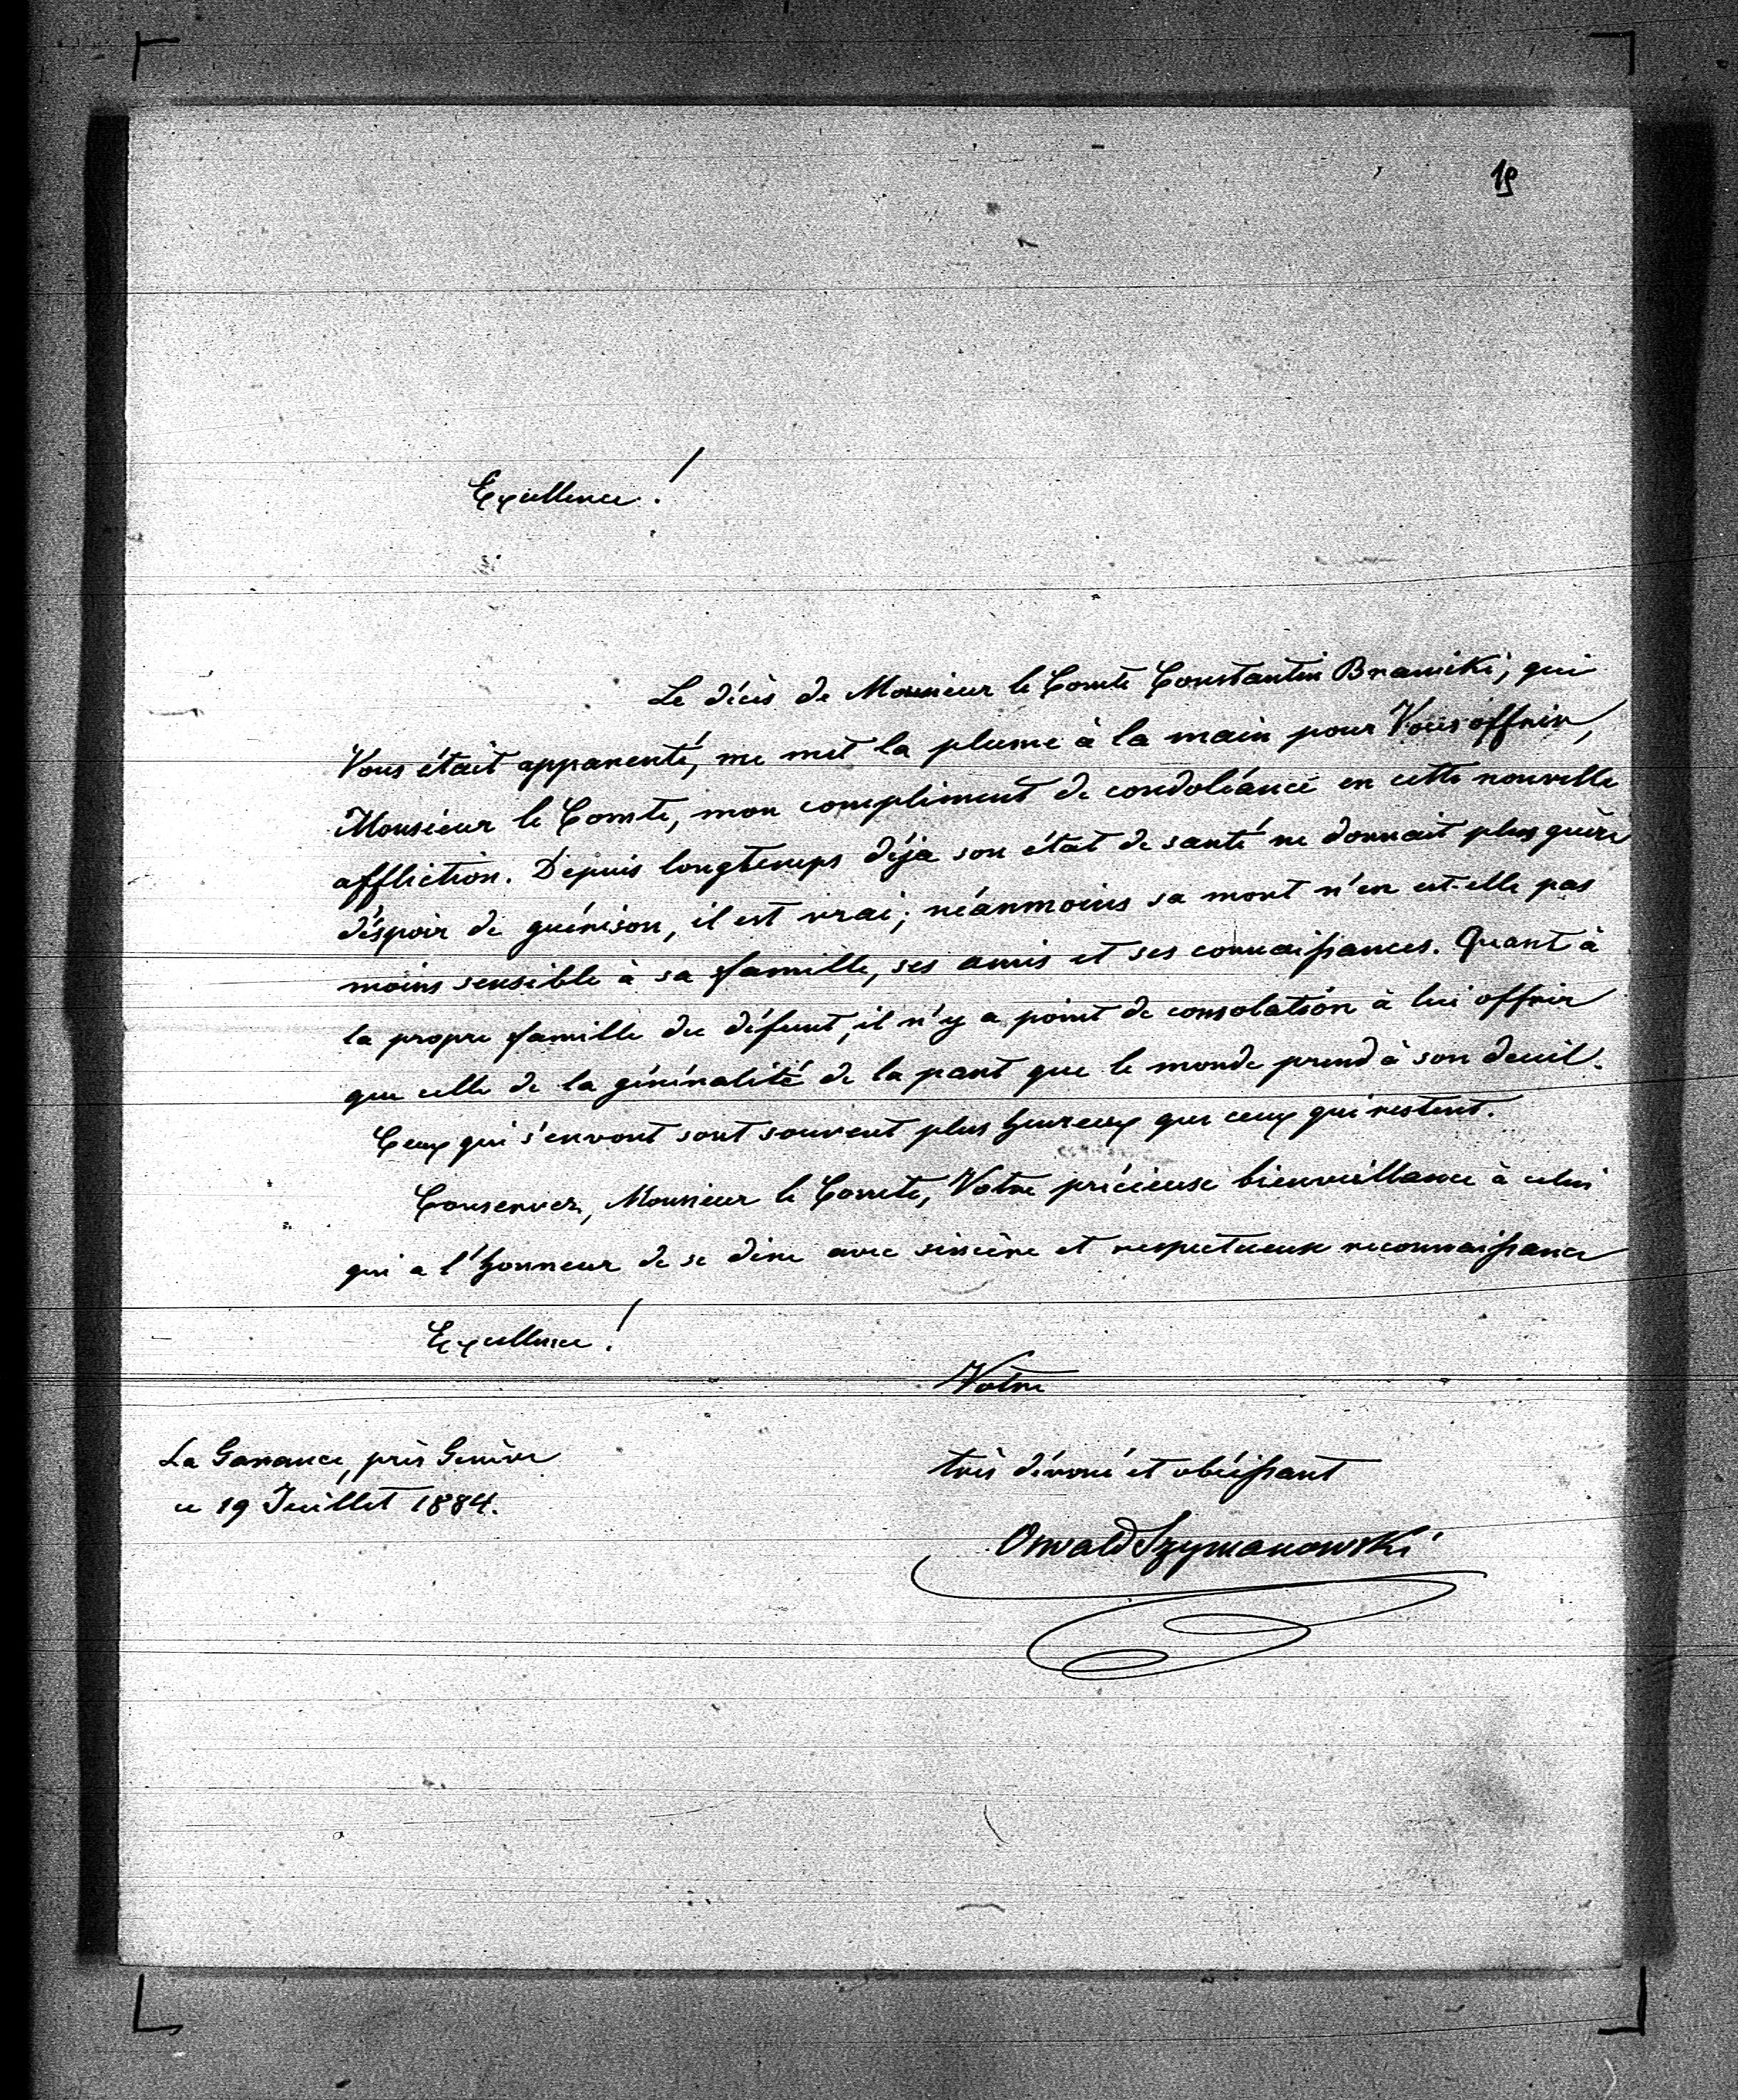 19
Excellence!
Le décès de Monsieur le Comte Constantin Braniki, qui
Vous était apparenté, me met la plume à la main pour Vous offrir,
Monsieur le Comte, mon compliment de condoléance en cette nouvelle
affliction. Depuis longtemps déja son état de santé ne donnait plus guère
d'éspoir de guérison, il est vrai; néanmoins sa mort n'en est-elle pas
moins sensible à sa famille, ses amis et ses connaissances. Quant à
la propre famille du défunt, il n'y a point de consolation à lui offrir
que celle de la généralité de la part que le monde prend à son deuil.
Ceux qui s'en vont sont souvent plus heureux que ceux qui restent.
Conservez, Monsieur le Comte, Votre précieuse bienveillance à celui
qui a l'honneur de se dire avec sincère et respectueuse reconnaissance
Excellence!
Votre
La Garance, près Genève
très dévoué et obéissant
ce 19 Juillet 1884.
Oswald Szymanowski